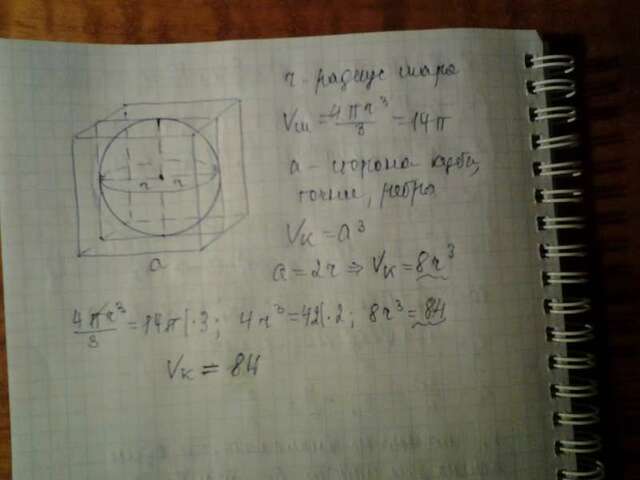 r - радиус шара
Vш = 4πr³/3 = 14π
a - сторона куба,
точнее, ребро
Vк = a³
a = 2r ⇒ Vк = 8r³
r r
a
4πr³/3 = 14π |·3; 4r³ = 42 |·2; 8r³ = 84
Vк = 84